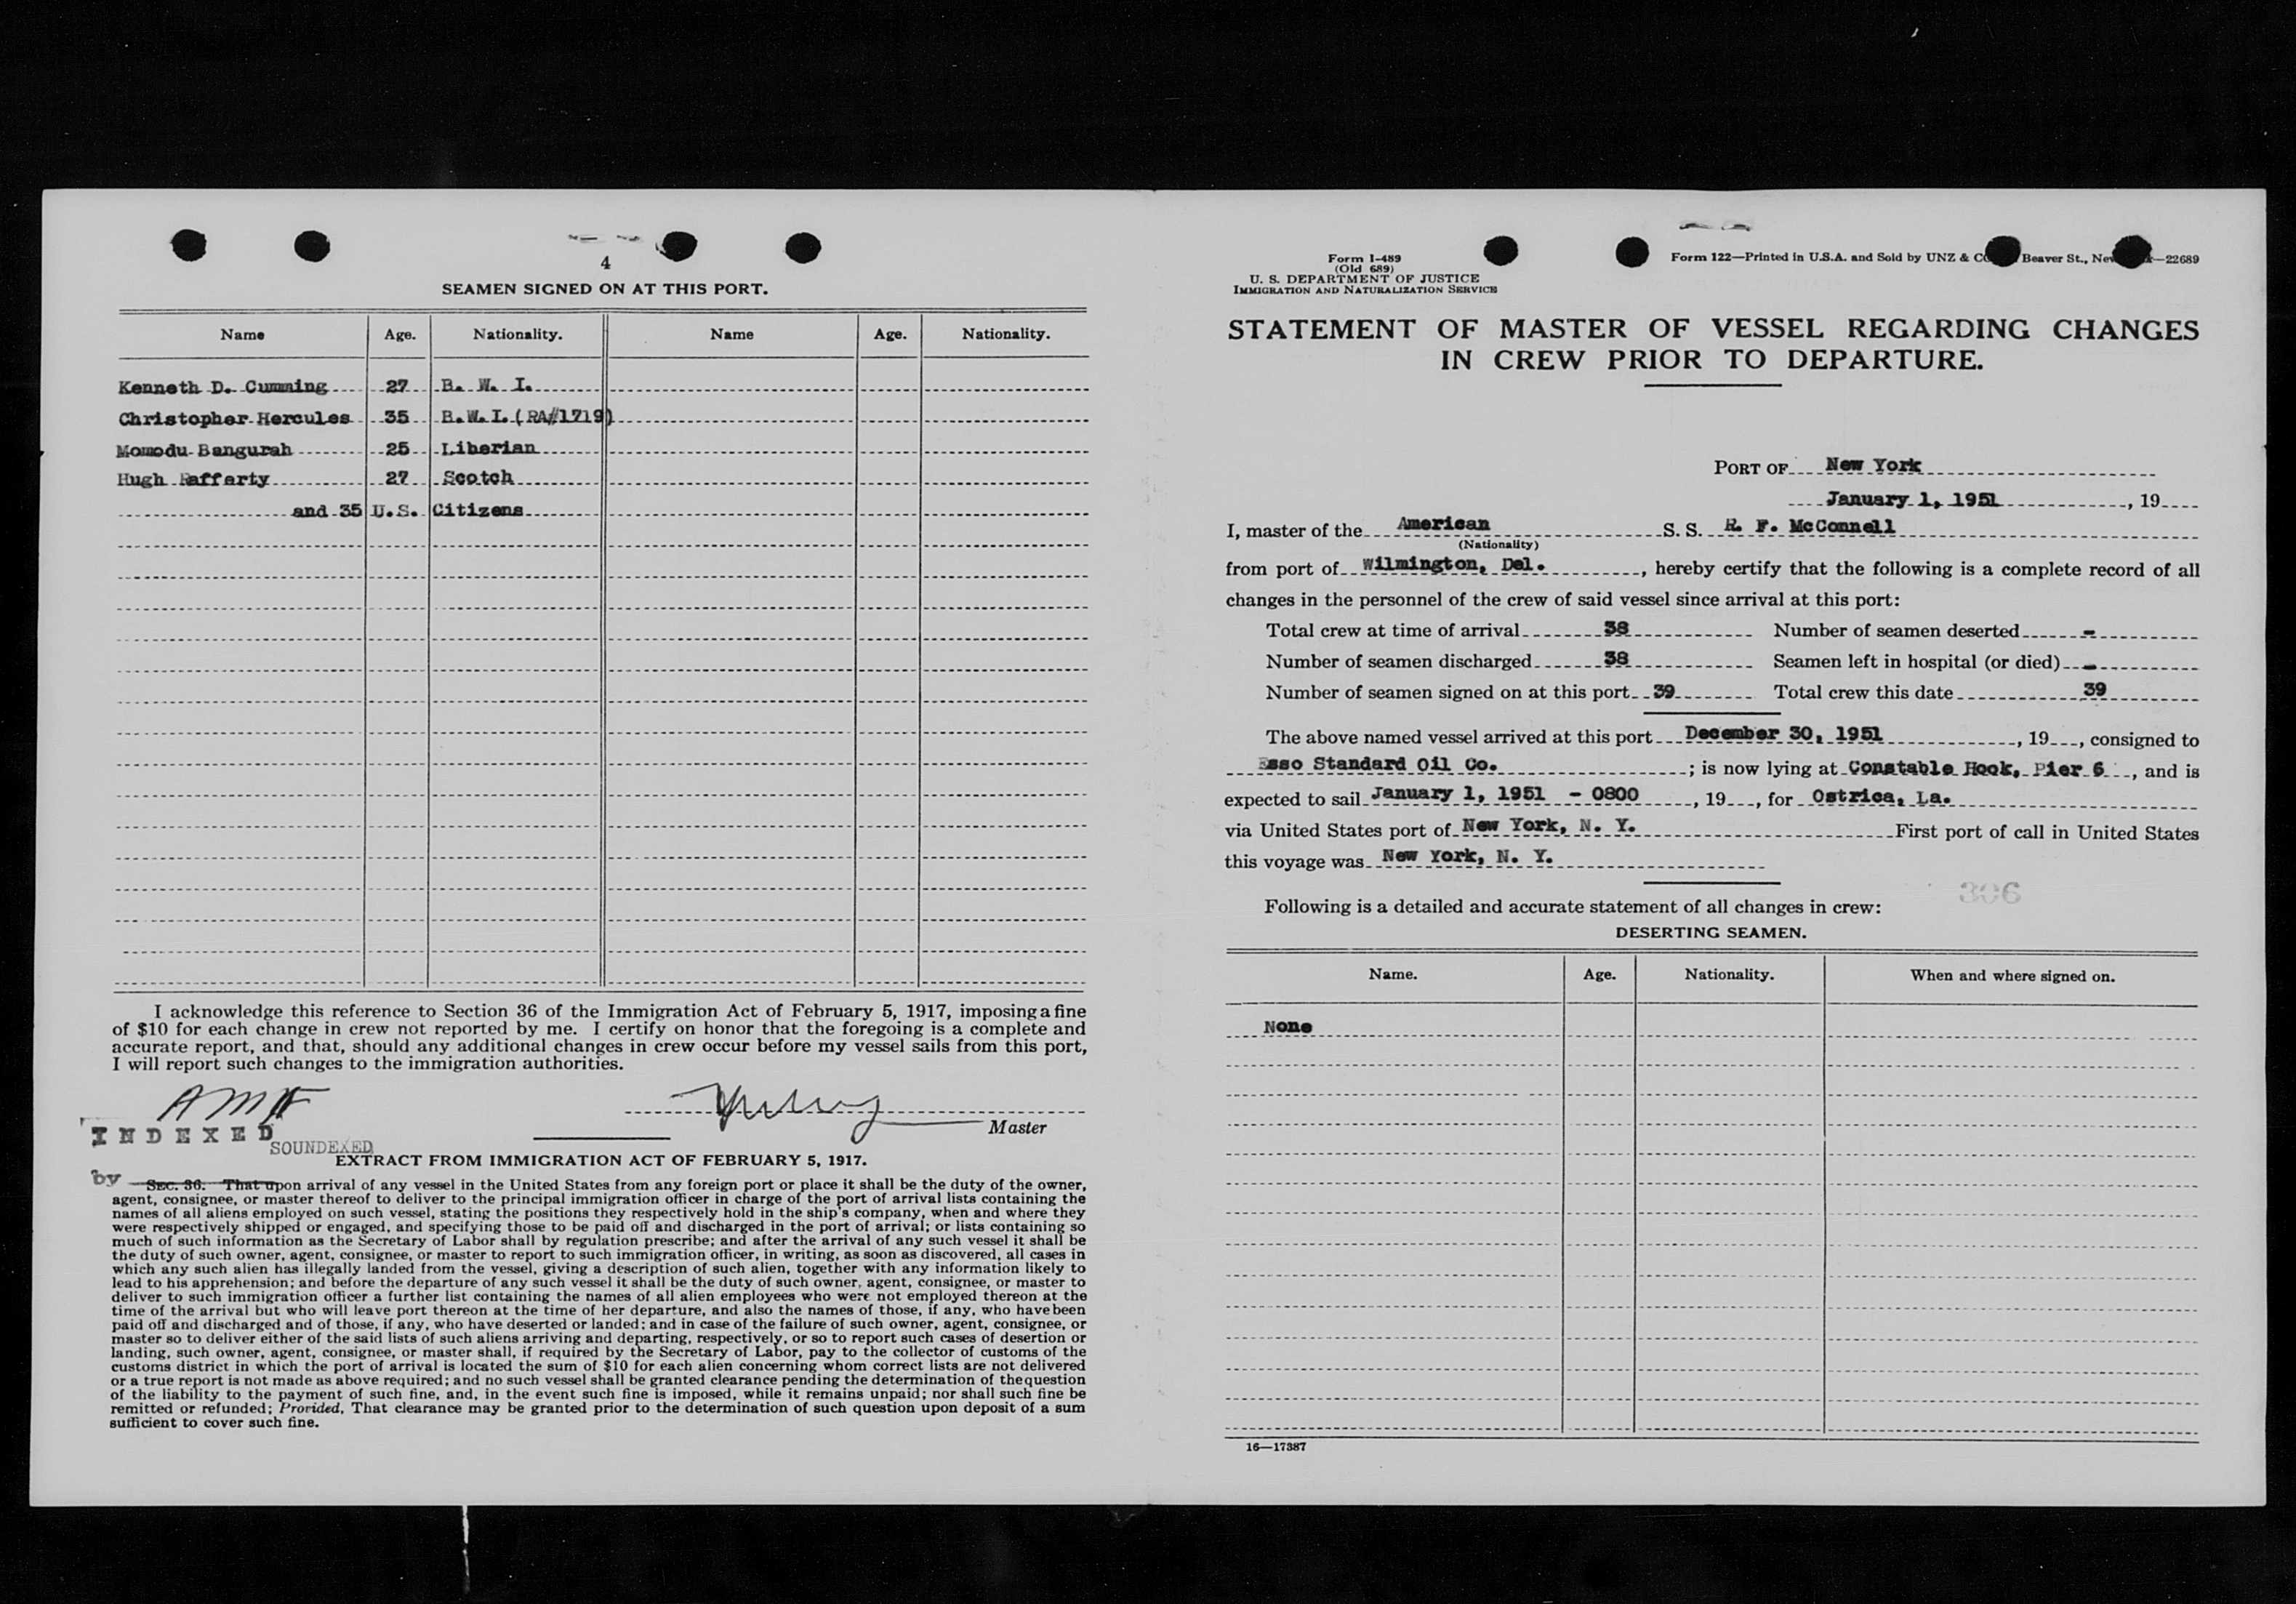 4
SEAMEN SIGNED ON AT THIS PORT.
Name Age. Nationality. Name Age. Nationality.
Kenneth D. Cumming 27 B. W. I.
Christopher Hercules 35 B.W.I.(RA#1719)
Momodu Bangurah 25 Liberian
Hugh Rafferty 27 Scotch
and 35 U.S. Citizens
I acknowledge this reference to Section 36 of the Immigration Act of February 5, 1917, imposing a fine
of $10 for each change in crew not reported by me. I certify on honor that the foregoing is a complete and
accurate report, and that, should any additional changes in crew occur before my vessel sails from this port,
I will report such changes to the immigration authorities.
Master
INDEXED
SOUNDEXED
EXTRACT FROM IMMIGRATION ACT OF FEBRUARY 5, 1917.
by
SEC. 36. That upon arrival of any vessel in the United States from any foreign port or place it shall be the duty of the owner,
agent, consignee, or master thereof to deliver to the principal immigration officer in charge of the port of arrival lists containing the
names of all aliens employed on such vessel, stating the positions they respectively hold in the ship's company, when and where they
were respectively shipped or engaged, and specifying those to be paid off and discharged in the port of arrival; or lists containing so
much of such information as the Secretary of Labor shall by regulation prescribe; and after the arrival of any such vessel it shall be
the duty of such owner, agent, consignee, or master to report to such immigration officer, in writing, as soon as discovered, all cases in
which any such alien has illegally landed from the vessel, giving a description of such alien, together with any information likely to
lead to his apprehension; and before the departure of any such vessel it shall be the duty of such owner, agent, consignee, or master to
deliver to such immigration officer a further list containing the names of all alien employees who were not employed thereon at the
time of the arrival but who will leave port thereon at the time of her departure, and also the names of those, if any, who have been
paid off and discharged and of those, if any, who have deserted or landed; and in case of the failure of such owner, agent, consignee, or
master so to deliver either of the said lists of such aliens arriving and departing, respectively, or so to report such cases of desertion or
landing, such owner, agent, consignee, or master shall, if required by the Secretary of Labor, pay to the collector of customs of the
customs district in which the port of arrival is located the sum of $10 for each alien concerning whom correct lists are not delivered
or a true report is not made as above required; and no such vessel shall be granted clearance pending the determination of the question
of the liability to the payment of such fine, and, in the event such fine is imposed, while it remains unpaid; nor shall such fine be
remitted or refunded; Provided, That clearance may be granted prior to the determination of such question upon deposit of a sum
sufficient to cover such fine.
Form I-489
(Old 689)
U. S. DEPARTMENT OF JUSTICE
IMMIGRATION AND NATURALIZATION SERVICE
Form 122—Printed in U.S.A. and Sold by UNZ & Beaver St., —22689
STATEMENT OF MASTER OF VESSEL REGARDING CHANGES
IN CREW PRIOR TO DEPARTURE.
PORT OF New York
January 1, 1951, 19
I, master of the American S. S. R. F. McConnell
(Nationality)
from port of Wilmington, Del., hereby certify that the following is a complete record of all
changes in the personnel of the crew of said vessel since arrival at this port:
Total crew at time of arrival 38 Number of seamen deserted -
Number of seamen discharged 38 Seamen left in hospital (or died) -
Number of seamen signed on at this port 39 Total crew this date 39
The above named vessel arrived at this port December 30, 1951, 19, consigned to
Esso Standard Oil Co.; is now lying at Constable Hook, Pier 6, and is
expected to sail January 1, 1951 - 0800, 19, for Ostrica, La.
via United States port of New York, N. Y. First port of call in United States
this voyage was New York, N. Y.
306
Following is a detailed and accurate statement of all changes in crew:
DESERTING SEAMEN.
Name. Age. Nationality. When and where signed on.
None
16—17387